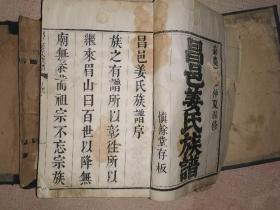 仲夏四修
昌邑姜氏族譜
慎餘堂存板
昌邑姜氏族譜序
族之有譜所以彰往所以
繼來眉山曰百世以降無
廟無祭而祖宗不忘宗族